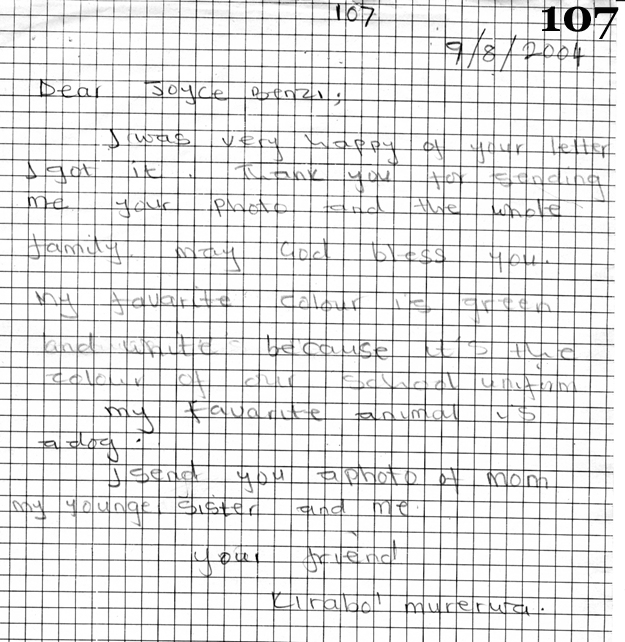 107
107
9/8/2004
Dear Joyce Benzi;
I was very happy of your letter
I got it. Thank you for sending
me your photo and the whole
family. may God bless you.
my favarite colour is green
and white because it's the
colour of our school uniform
my favarite animal is
a dog.
I send you aphoto of mom
my younge sister and me.
your friend
Kirabo murerwa.